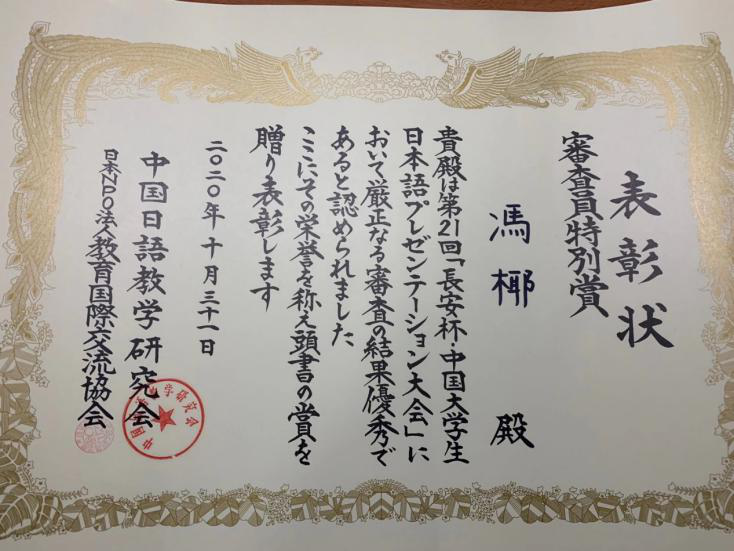 表彰状
審査員特別賞
馮椰 殿
貴殿は第21回「長安杯・中国大学生
日本語プレゼンテーション大会」に
おいて厳正なる審査の結果優秀で
あると認められました
ここにその栄誉を称え頭書の賞を
贈り表彰します
二〇二〇年十月三十一日
中国日語教学研究会
日本NPO法人教育国際交流協会